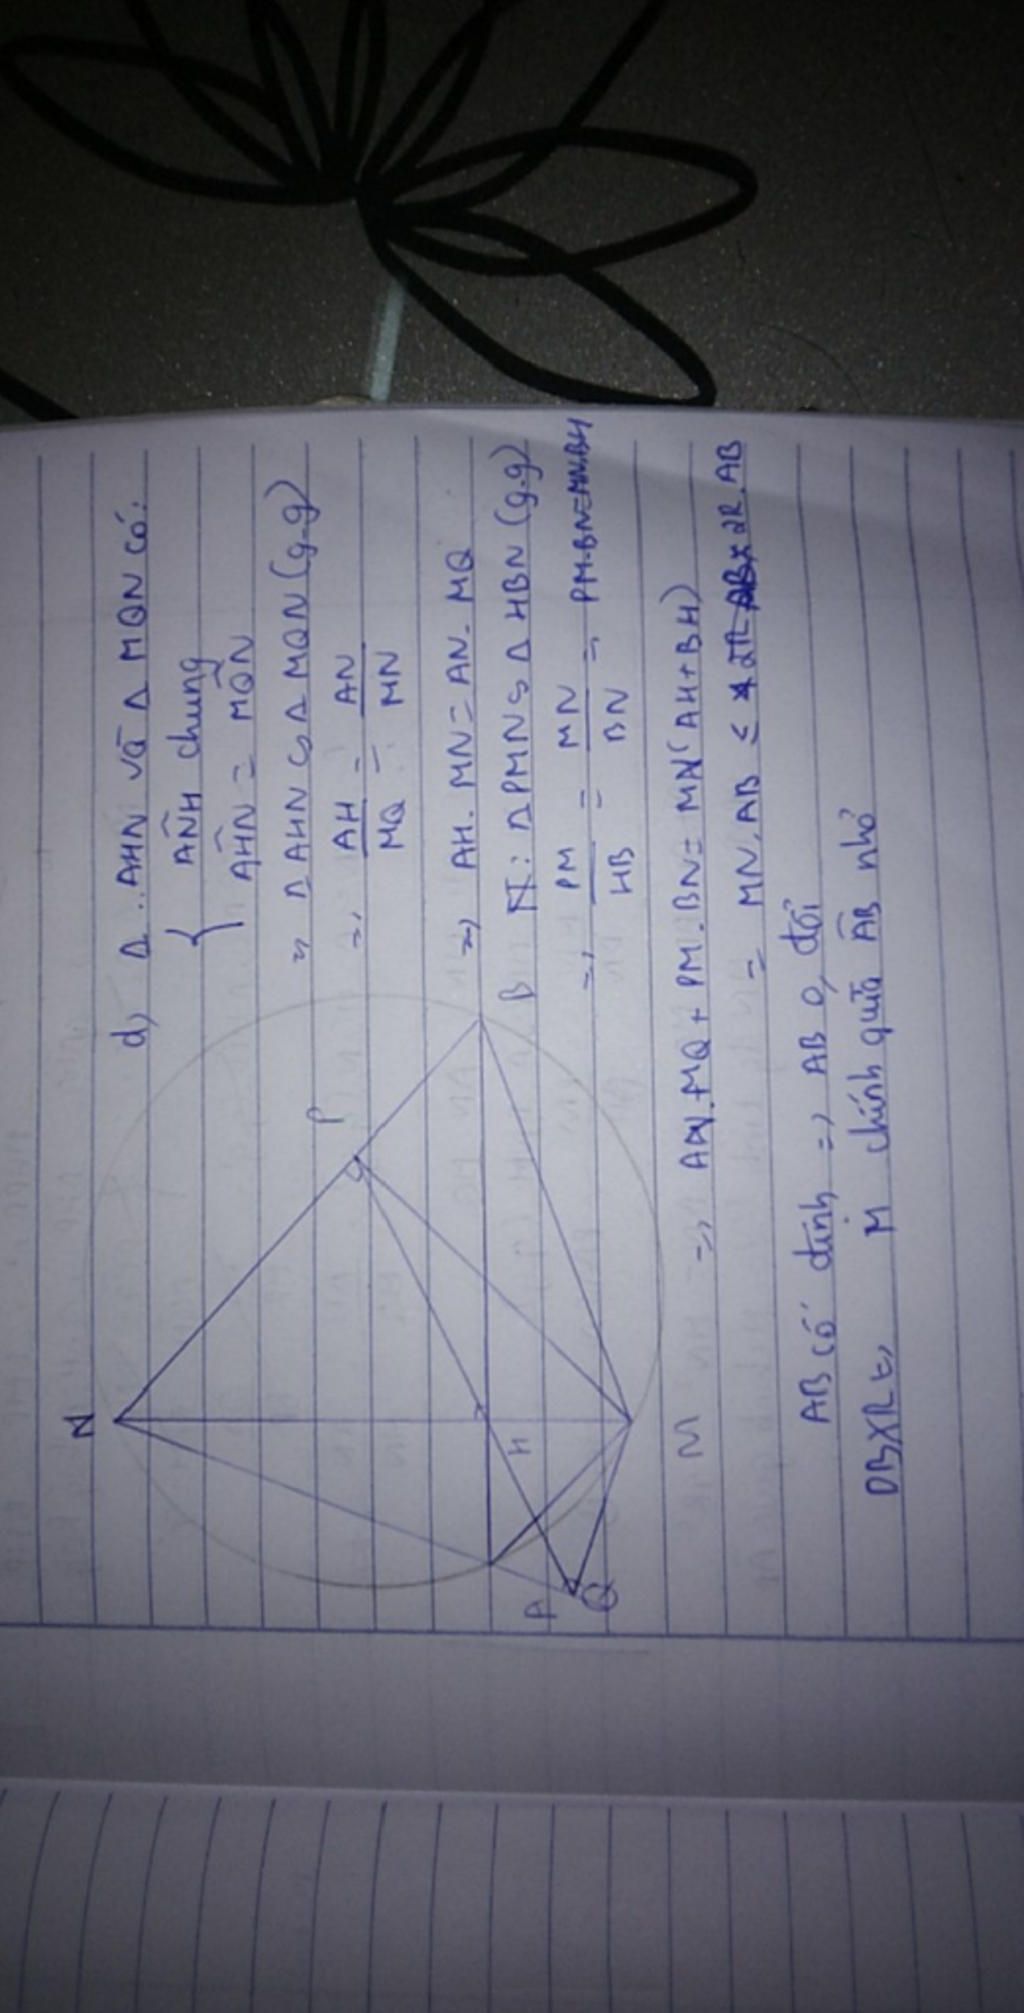 d) Δ AHN và Δ MQN có:
{ AN̂H chung
AĤN = MQ̂N
=> Δ AHN ∽ Δ MQN (g.g)
=> AH/MQ = AN/MN
=> AH. MN = AN. MQ
N: Δ PMN ∽ Δ HBN (g.g)
=> PM/HB = MN/BN => PM.BN=MN.BH
=> AN.MQ + PM.BN = MN(AH+BH)
= MN.AB ≤ 2R.AB
AB cố định => AB 0, đổi
DBXR <=> M chính giữa AB nhỏ
N
P
B
H
A
Q
M